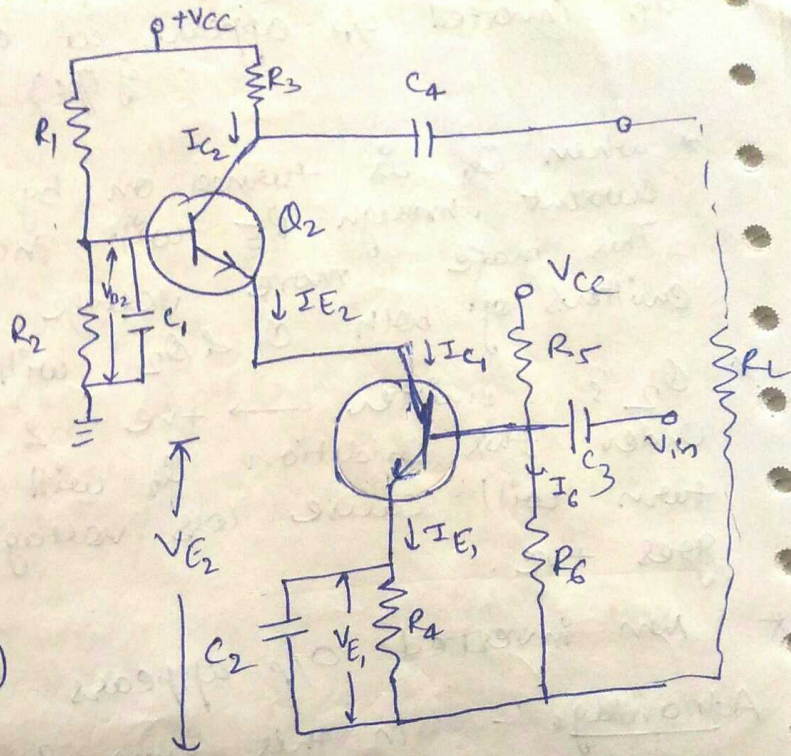 +VCC
R3
C4
R1
IC2
Q2
VB2
C1
R2
IE2
VCC
IC1
R5
RL
Vin
C3
I6
VE2
IE1
R6
C2
VE1
R4